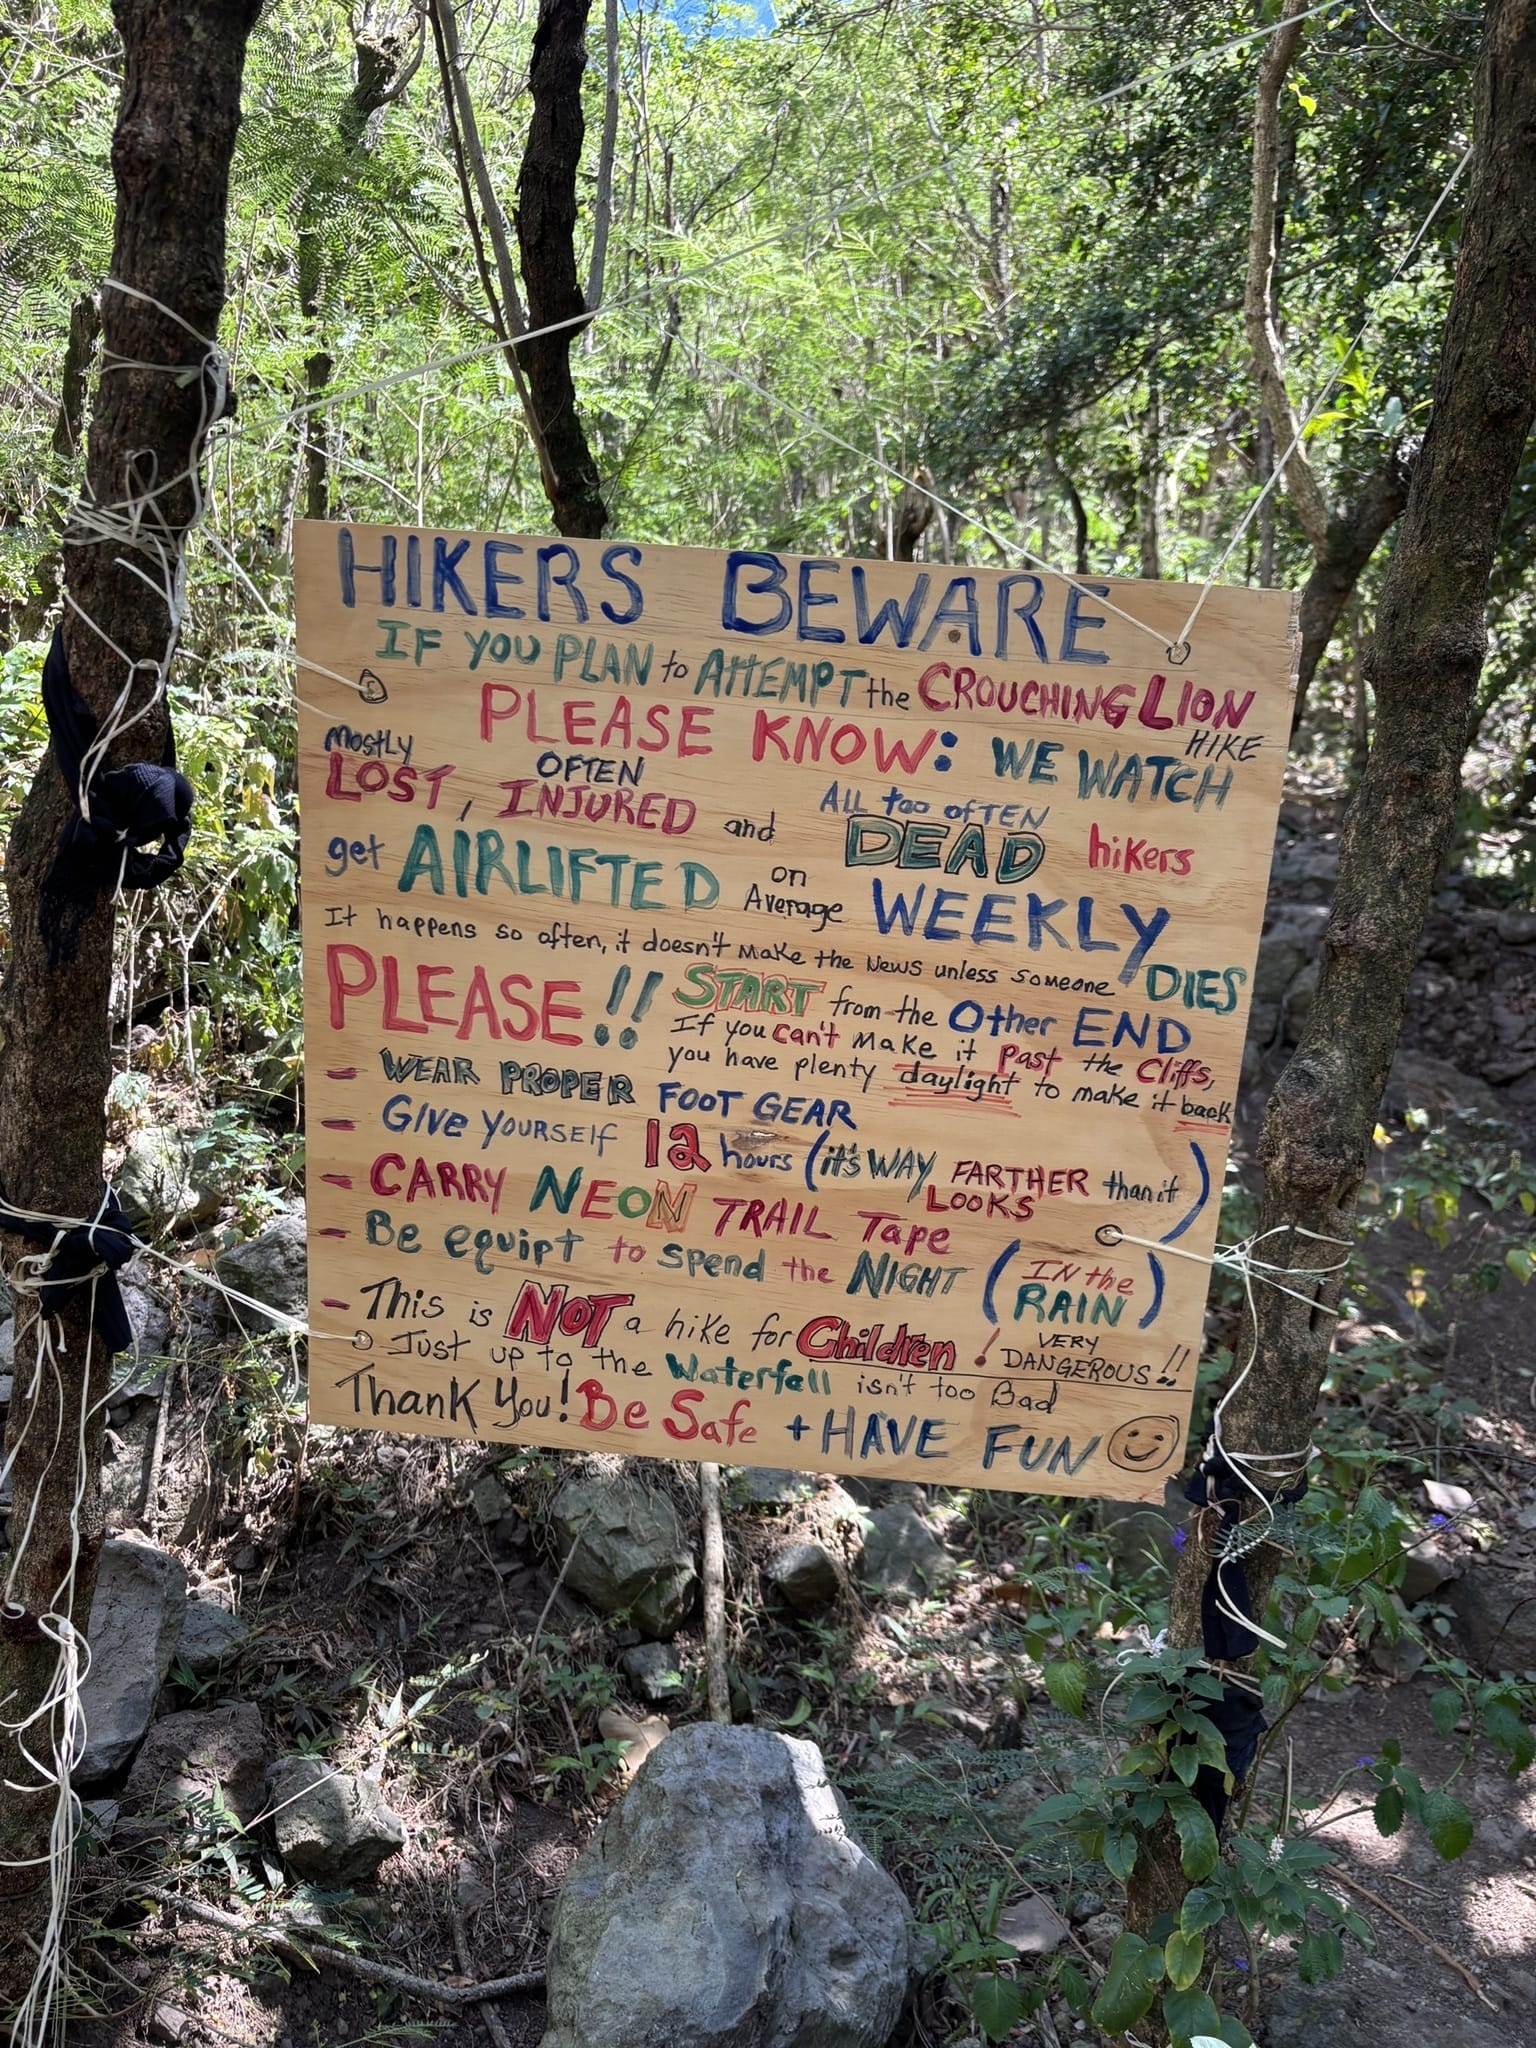 HIKERS BEWARE
IF YOU PLAN to ATTEMPT the CROUCHING LION HIKE
PLEASE KNOW: WE WATCH
MOSTLY OFTEN ALL too ofTEN
LOST, INJURED and DEAD hikers
get AIRLIFTED on Average WEEKLY
It happens so often, it doesn't make the News unless someone DIES
PLEASE!! START from the Other END
If you can't make it past the Cliffs,
you have plenty daylight to make it back
- WEAR PROPER FOOT GEAR
- GIVE YOURSELF 12 hours (it's WAY FARTHER than it LOOKS)
- CARRY NEON TRAIL Tape
- Be equipt to spend the NIGHT (IN the RAIN)
- This is NOT a hike for Children! VERY DANGEROUS!!
Just up to the Waterfall isn't too Bad
Thank You! Be Safe + HAVE FUN